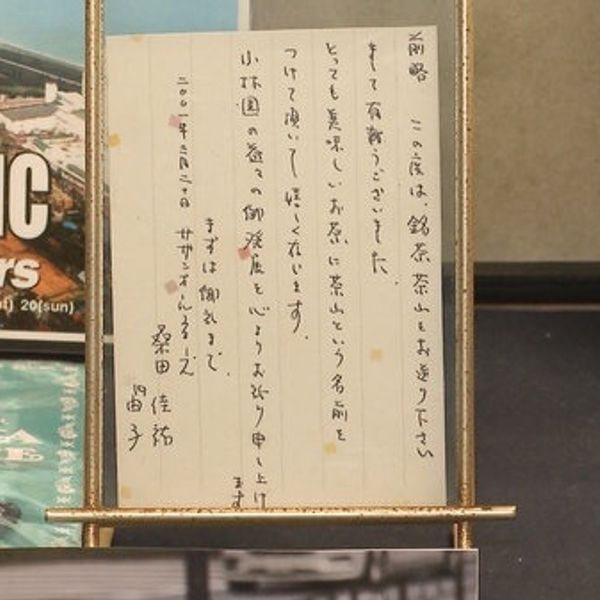 前略 この度は、銘茶茶山をお送り下さい
まして有難うございました。
とっても美味しいお茶に茶山という名前を
つけて頂いて嬉しく思います。
小林園の益々の御発展を心よりお祈り申し上げ
ます
まずは御礼まで。
二〇〇一年二月二十日 サザンオールスターズ
桑田 佳祐
原 由子
IC
rs
20(sun)